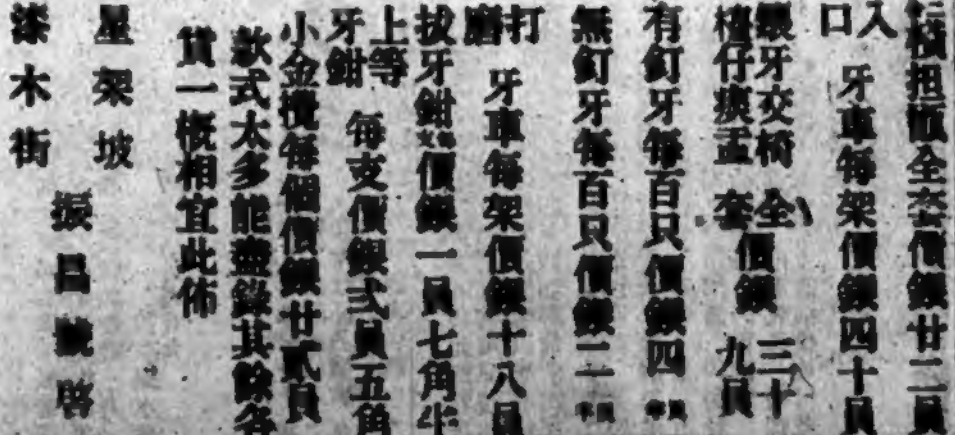 全套價銀廿二員
入口牙車每架價銀四十員
牙交椅仔痰盂全套價銀三十九員
有釘牙每百只價銀四
無釘牙每百只價銀二
打磨牙車每架價銀十八員
拔牙鉗價銀一員七角半
上等牙鉗每支價銀弍員五角
小金欖每個價銀廿貳員
款式太多能盡錄其餘各
貨一概相宜此佈
星架坡
漆木街
振昌號啓